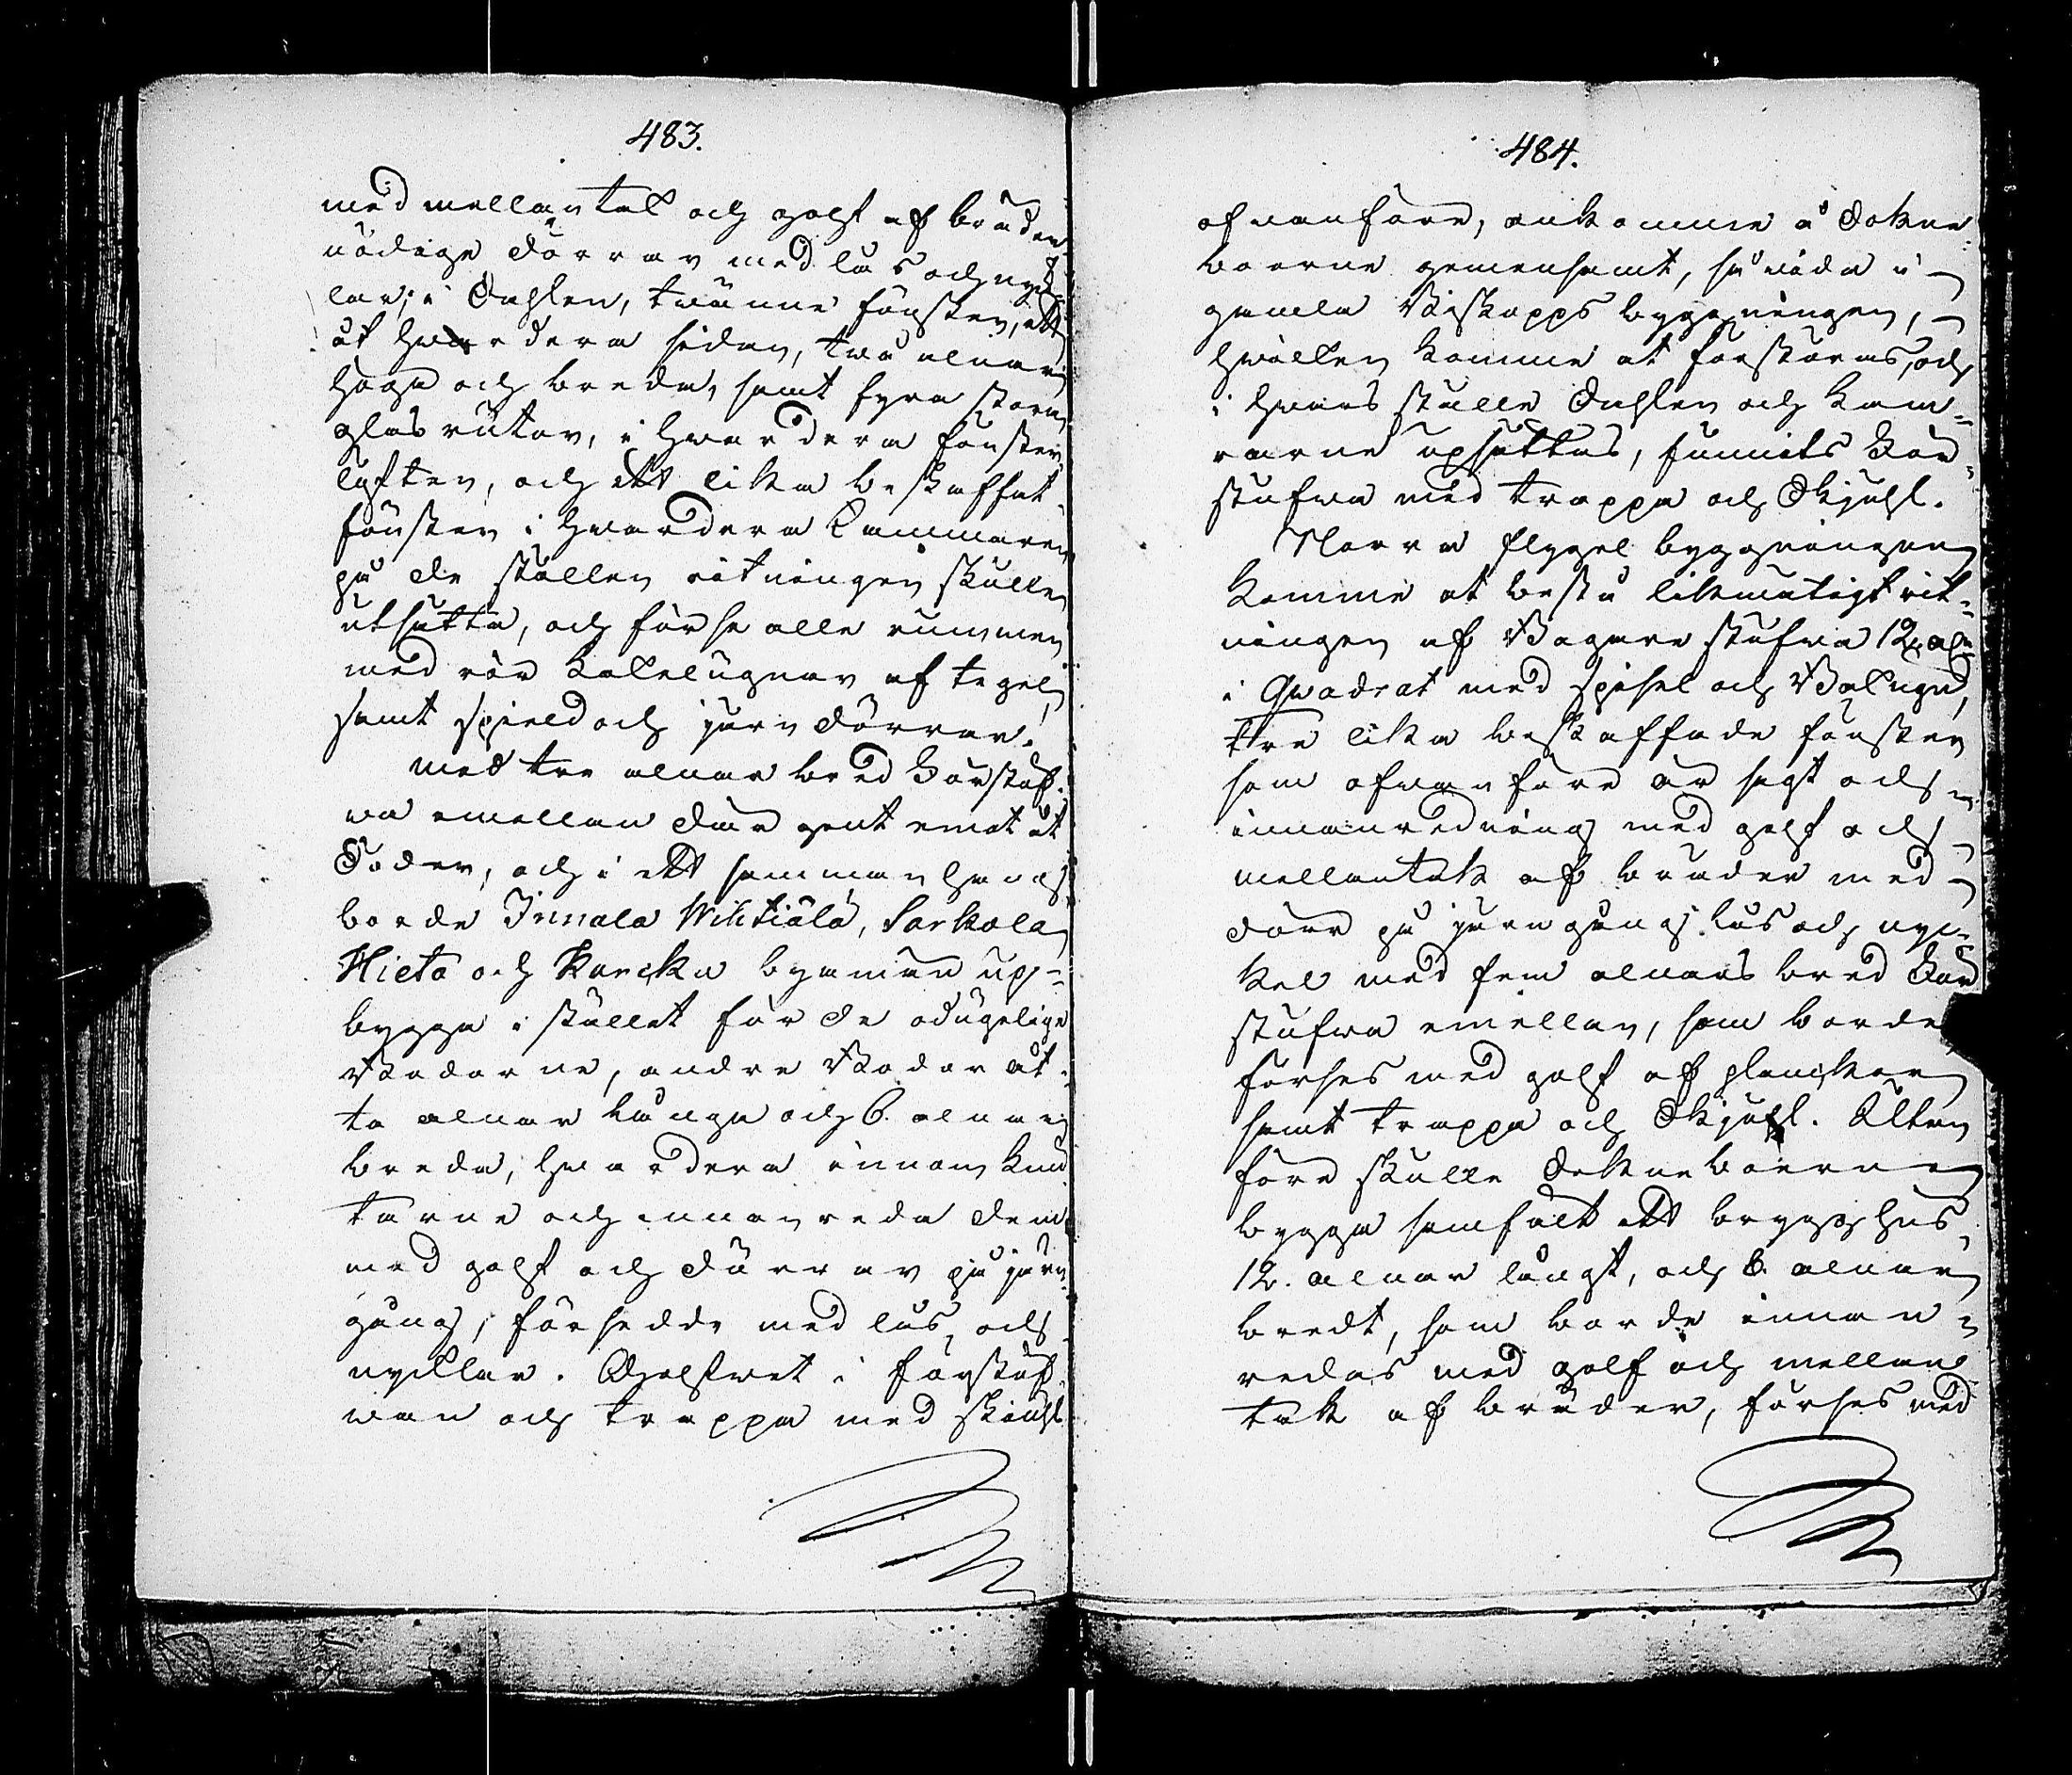 483.
med mellantak och golf af bräder
nödige dörrar med lås och nyck-
lar; i Sahlen, tvänne fönster, ett
åt hwardera sidan, twå alnar
höga och breda, samt fyra stora
glas rutor, i hwardera fönster
luften, och ett lika beskaffat
fönster i hwardera Cammaren
på de ställen ritningen skulle
utsätta, och förse alla rummen
med rör kakelugnar af tegel,
samt spield och jern dörrar.
med tre alnar bred Förstuf-
va emellan där gent emot åt
Söder, och i ett sammanhang
borde Innala Wihtiälä, Sarkola
Hieta och Karcku byamän up-
bygga i stället för de odugelige
Bodarne, andre Bodar åt-
ta alnar långa och 6. alnar
breda, hwardera innom knu-
tarne och innanreda dem
med golf och dörrar på jern
gång, försedde med lås och
nycklar. Golfwet i förstuf-
wan och trappa med skiuhl
484.
ofwanföre, ankomme å Sokne
boerne gemensamt, så vida i
gamla Biskopps byggningen,
hwilken komme at förstöras, och
i hwars ställe Sahlen och Kam-
rarne upsättas, funnits För-
stufwa med trappa och Skjuhl.
Norra flygel byggningen
komme at bestå likmätigt rit-
ningen af Bagare stufwa 12. aln:
i Quadrat med spisel och Bakugn,
tre lika beskaffade fönster
som ofwanföre är sagt och
innanredning med golf och
mellantak af bräder med
dörr på jern gång lås och nyc-
kel med fem alnars bred För
stufwa emellan, som borde
förses med golf af planckor
samt trappa och Skjuhl. Utan
före skulle Sokneboerne
bygga samfält ett brygghus
12. alnar långt, och 6. alnar
bredt, som borde innan-
redas med golf och mellan
tak af bräder, förses med